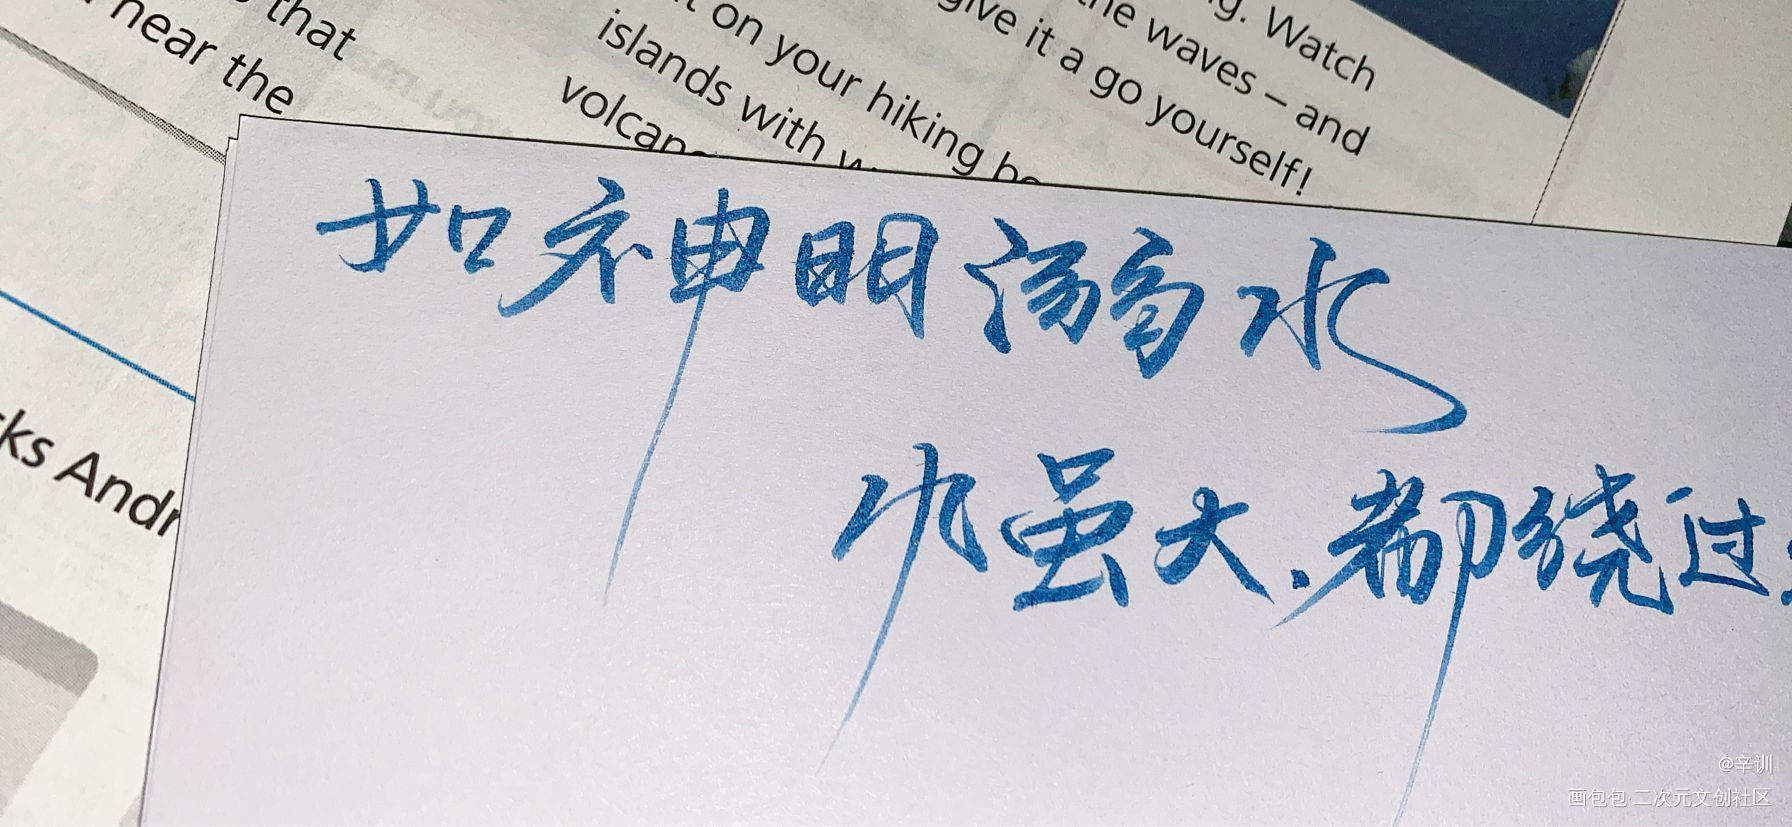 that
near the
on your hiking
islands with
give it a go yourself!
the waves – and
Watch
ks Andr
如神明溺水
水虽大.都绕过
@辛训
画包包·二次元文创社区